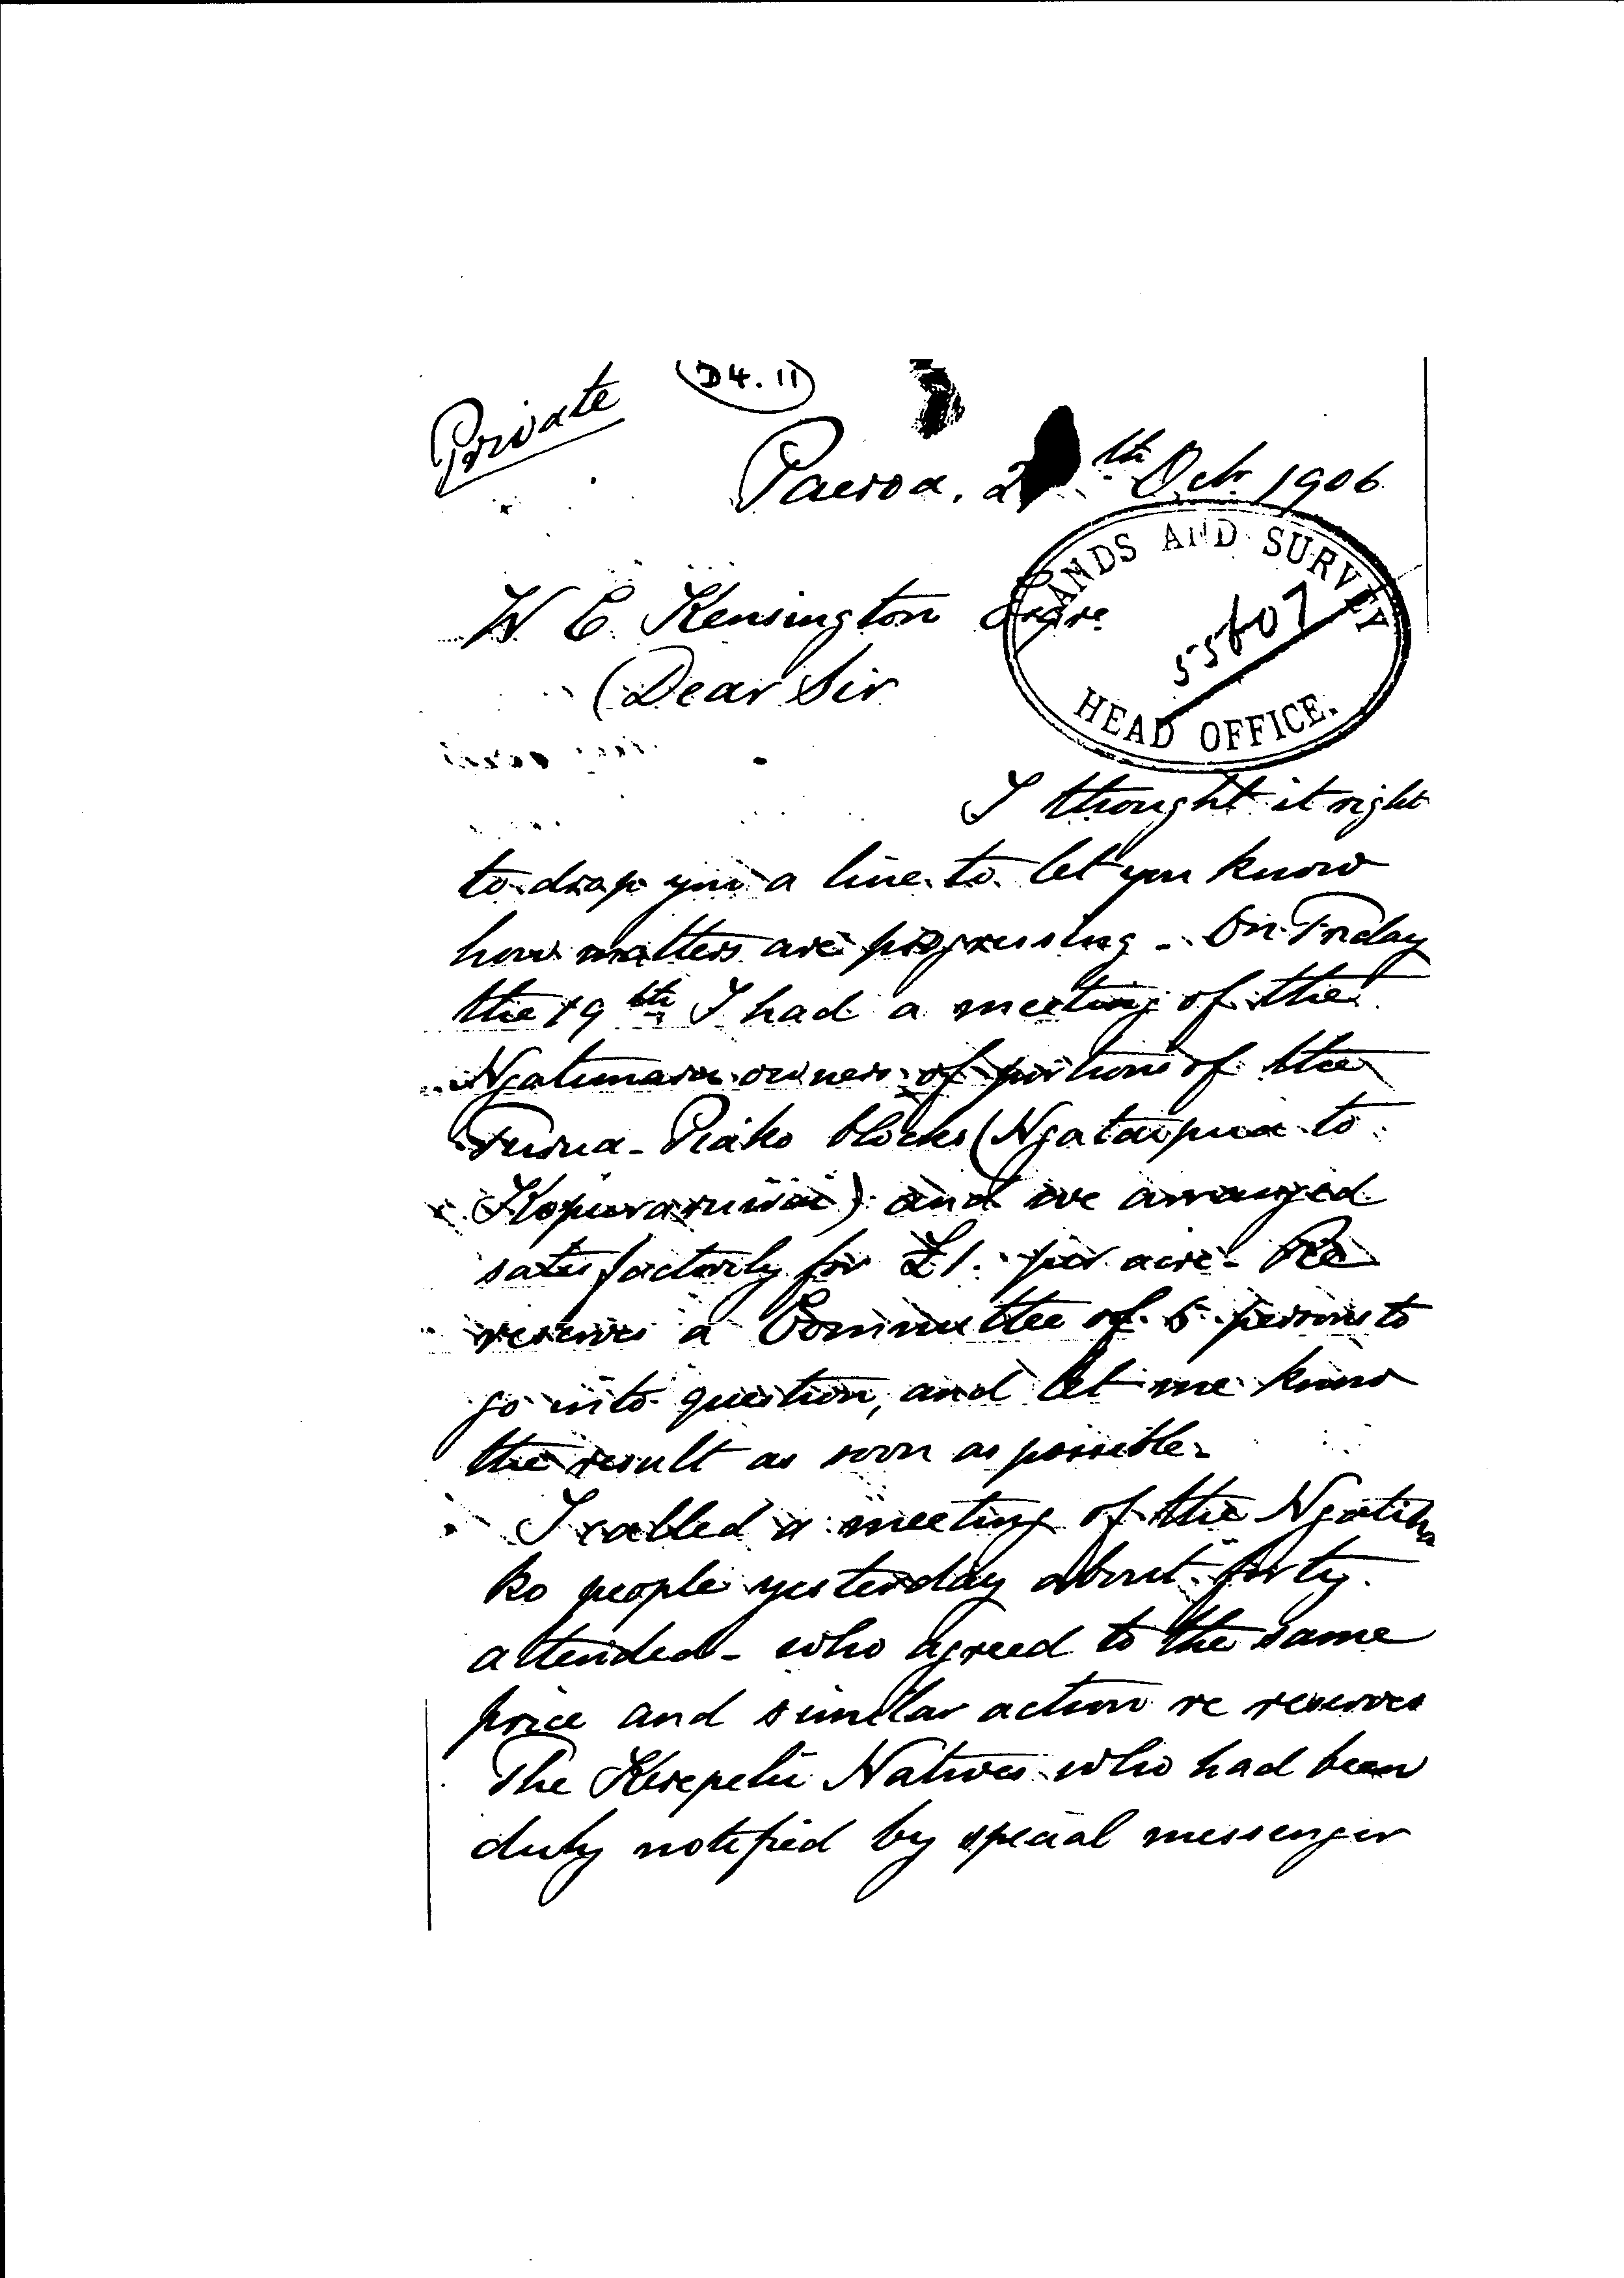 Private
(D4.11)
Paeroa. 2 th Oct 1906
LANDS AND SURVEY
55807
HEAD OFFICE.
W C Kensington Esqre
Dear Sir
I thought it right
to drop you a line to let you know
how matters are progressing - On Friday
the 19th I had a meeting of the
Ngatimaru owners of portions of the
Piako blocks (Ngataipua to
Kopuaranui) and we arranged
satisfactorily for £1. per acre - Re
reserves a Committee of 5 persons to
go into question, and let me know
the result as soon as possible.
I called a meeting of the Ngatiha
ko people yesterday about forty
attended - who agreed to the same
price and similar action re reserves
The Kerepehi Natives who had been
duly notified by special messenger